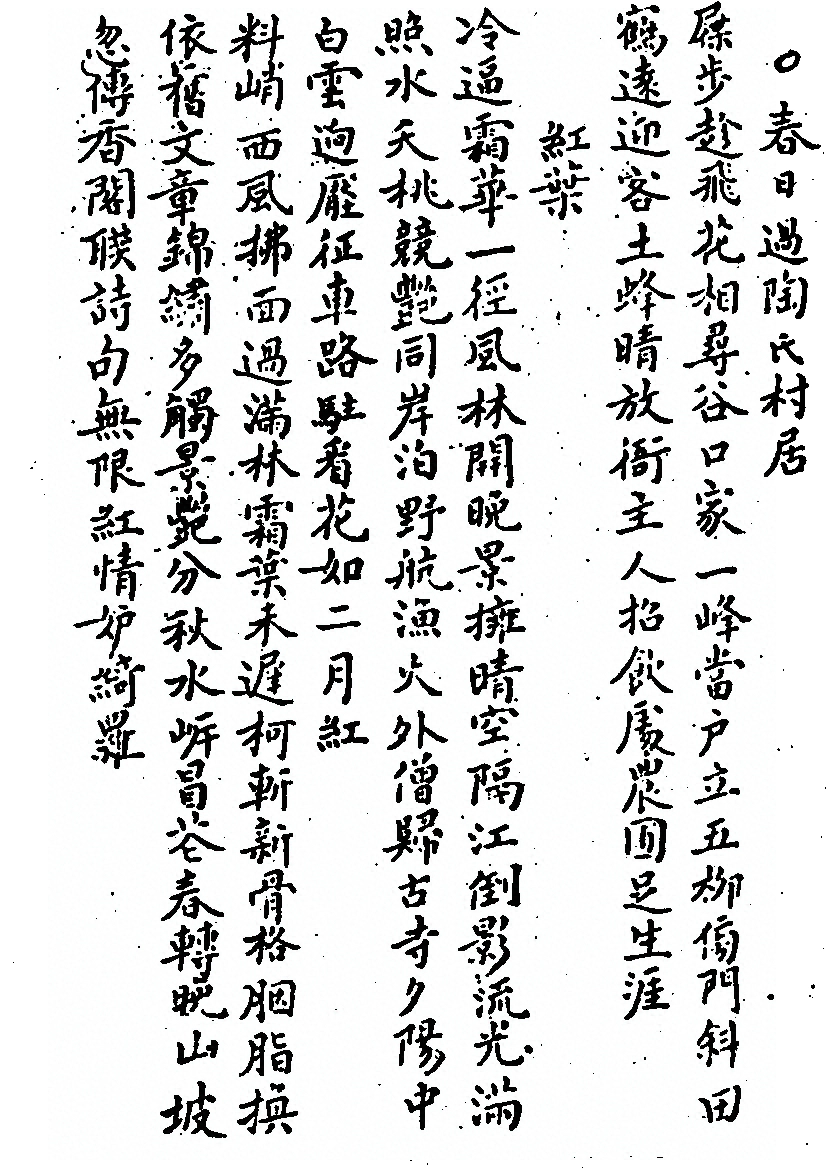 ○春日過陶氏村居
屧步趁飛花相尋谷口家一峰當户立五柳傍門斜田
鶴遠迎客土蜂晴放衙主人招飲處農圃足生涯
紅葉
冷逼霜華一徑風林開晚景擁晴空隔江倒影流光滿
照水夭桃競艷同岸泊野航漁火外僧歸古寺夕陽中
白雲迥壓征車路駐看花如二月紅
料峭西風拂面過滿林霜葉未遲柯斬新骨格胭脂換
依舊文章錦繡多觸景艷分秋水岸冒花春轉晚山坡
忽傳香閣聯詩句無限紅情妒綺羅